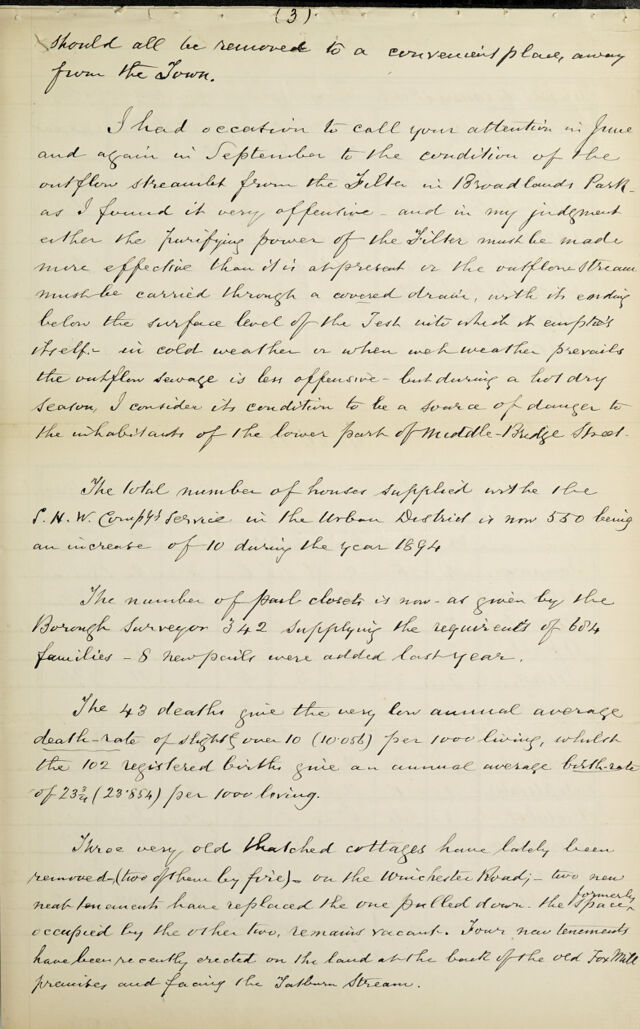 (3).
should all be removed to a convenient place, away
from the Town.
I had occasion to call your attention in June
and again in September to the condition of the
outflow streamlet from the Filter in Broadlands Park -
as I found it very offensive - and in my judgment
either the purifying power of the Filter must be made
more effective than it is at present or the outflow stream
must be carried through a covered drain, with its ending
below the surface level of the Test into which it empties
itself:- in cold weather or when wet weather prevails
the outflow sewage is less offensive - but during a hot dry
season, I consider its condition to be a source of danger to
the inhabitants of the lower part of Middle-Bridge Street.
The total number of houses supplied withe the
S. H. W. Compy's Service in the Urban District is now 550 being
an increase of 10 during the year 1894
The number of pail closets is now - as given by the
Borough Surveyor 342 supplying the requirents of 684
families - 8 new pails were added last year.
The 43 deaths give the very low annual average
death-rate of slightly over 10 (10.056) per 1000 living, whilst
the 102 registered births give an annual average birth-rate
of 23¾ (23.854) per 1000 living.
Three very old thatched cottages have lately been
removed - (two of them by fire) - on the Winchester Road; - two new
neat tenements have replaced the one pulled down - the space formerly
occupied by the other two, remains vacant. Four new tenements
have been recently erected on the land at the back of the old Fox Mill
premises and facing the Tadburn Stream.